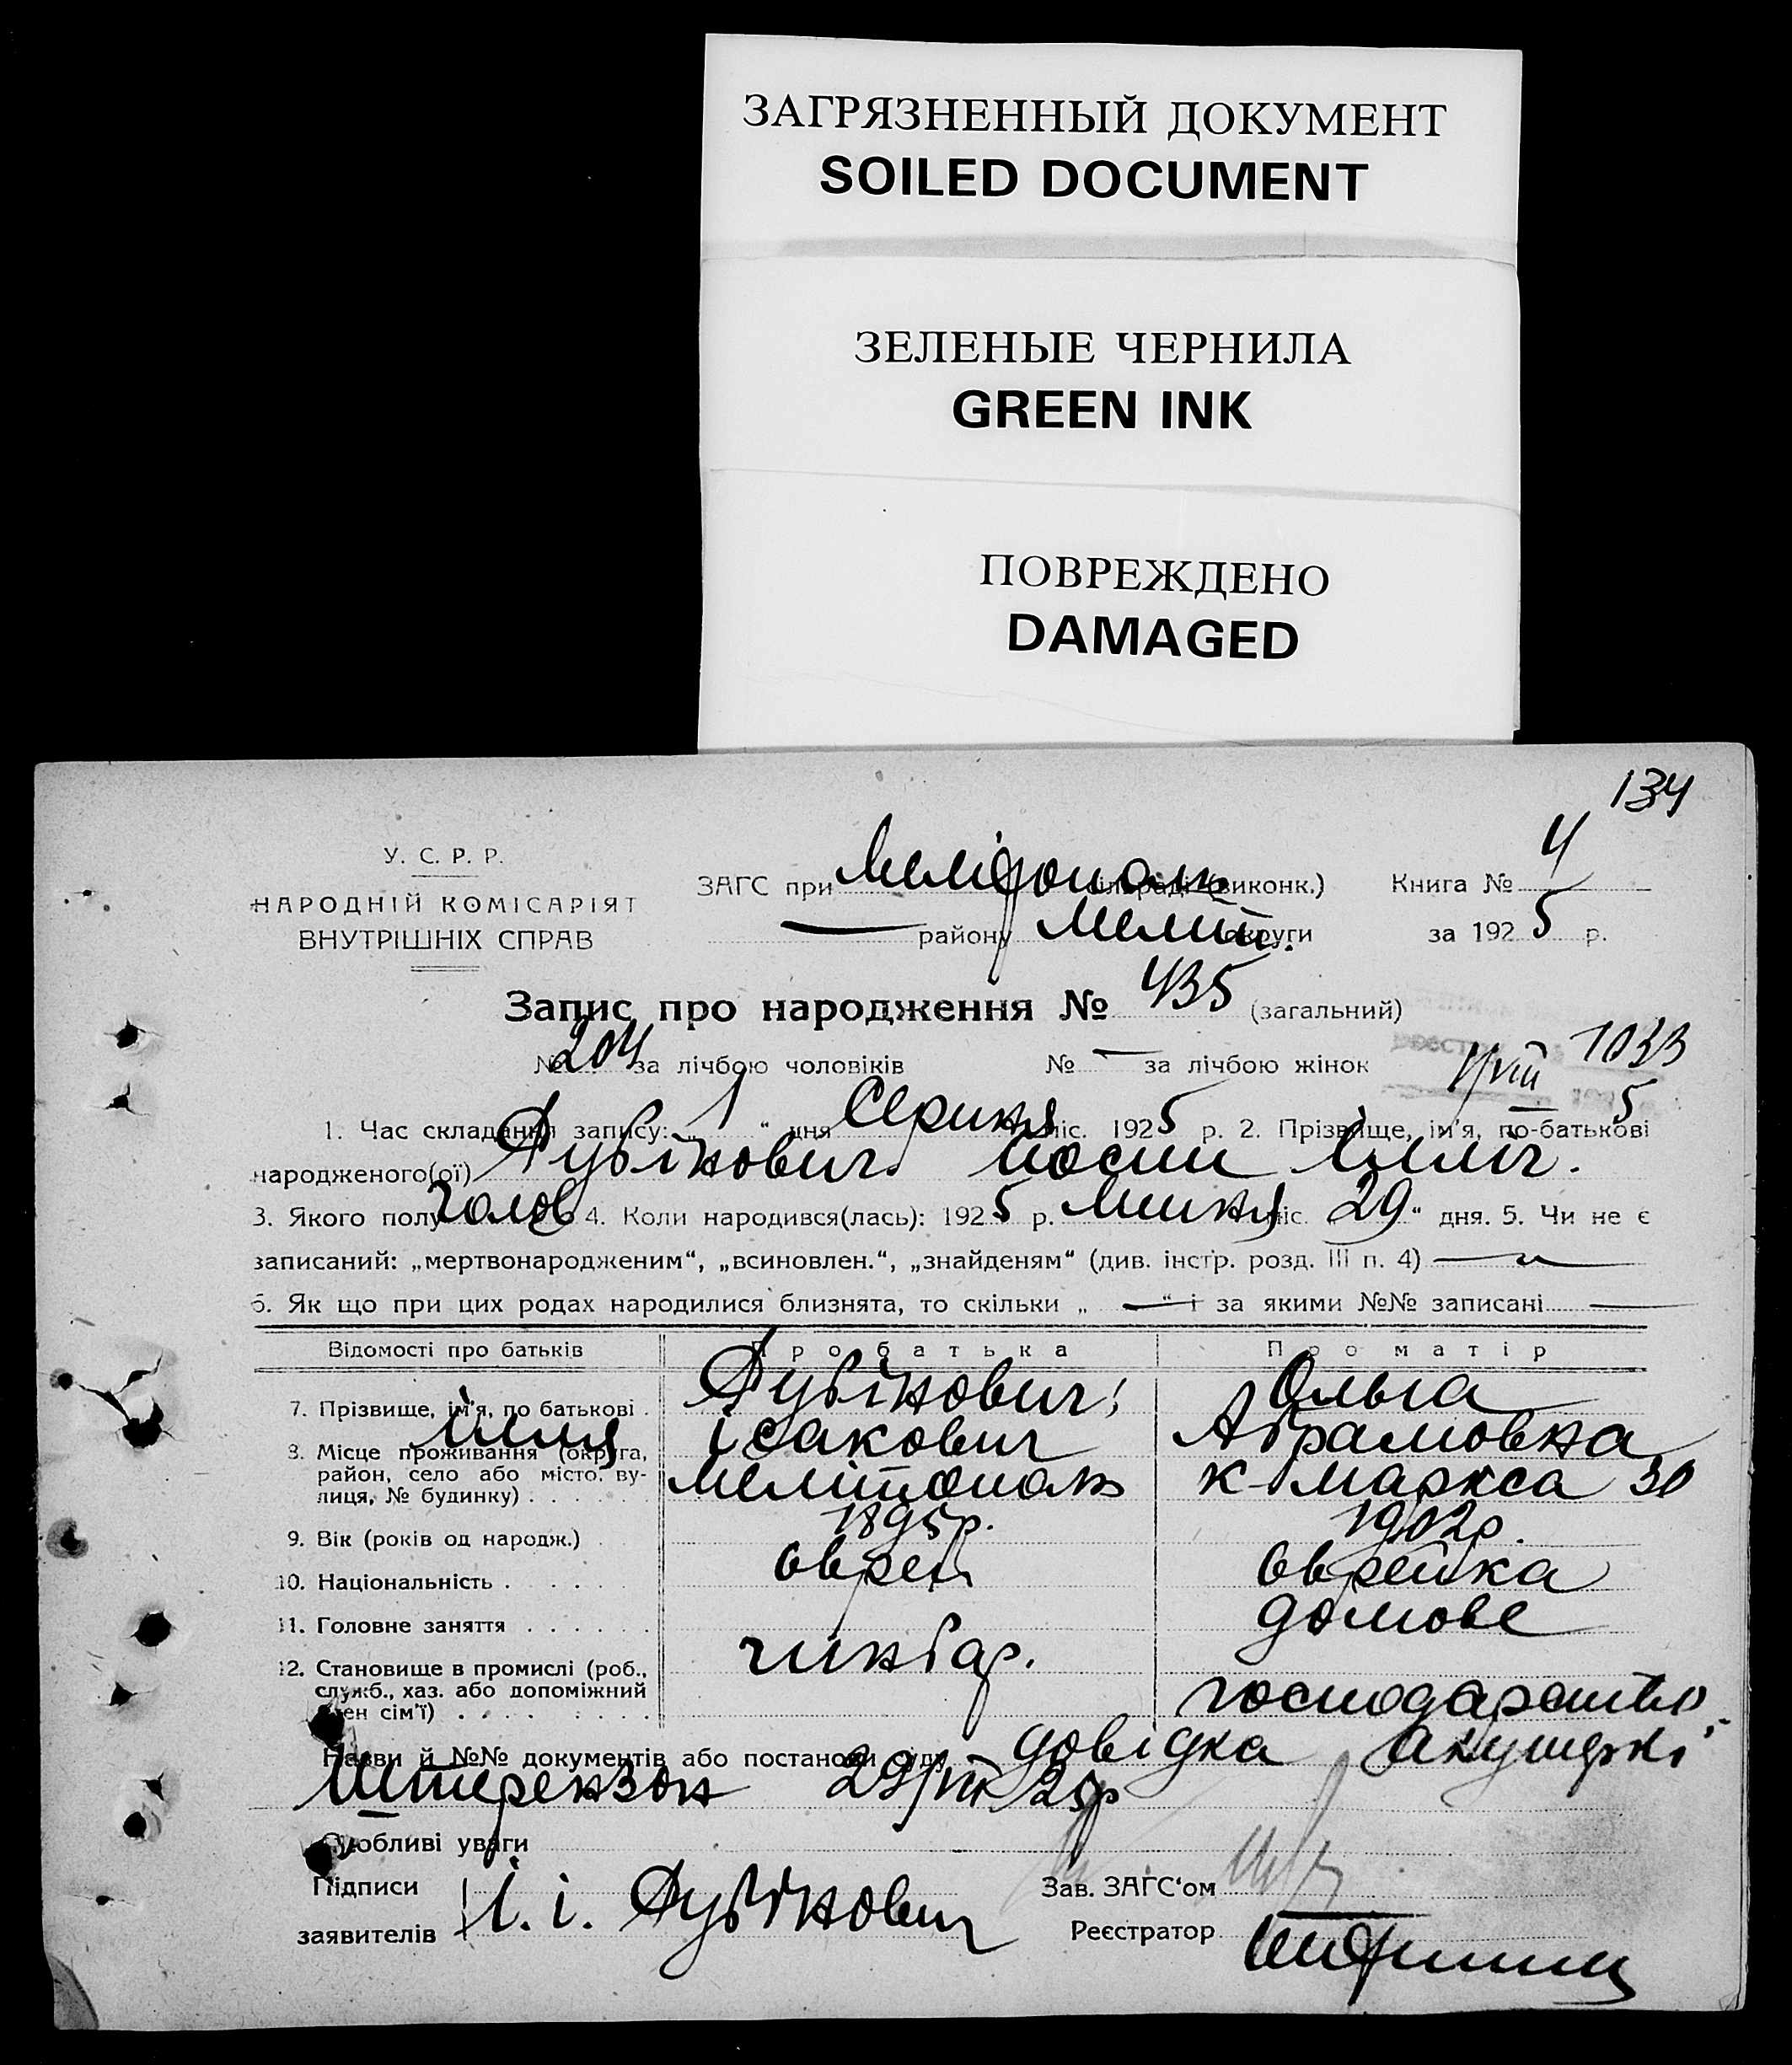 ЗАГРЯЗНЕННЫЙ ДОКУМЕНТ
SOILED DOCUMENT
ЗЕЛЕНЫЕ ЧЕРНИЛА
GREEN INK
ПОВРЕЖДЕНО
DAMAGED
134
У. С. Р. Р.
НАРОДНІЙ КОМІСАРІЯТ
ВНУТРІШНІХ СПРАВ
ЗАГС при Мелітополь сільраді (виконк.) Книга № 4
— району Меліт. округи за 1925 р.
Запис про народження № 435 (загальний)
№ 204 за лічбою чоловіків № — за лічбою жінок
1/VIII 1033
5
1. Час складання запису: „ 1 “ дня Серпня міс. 1925 р. 2. Прізвище, ім'я, по-батькові
народженого(ої) Дубінович Йосип Ілліч.
3. Якого полу чолов 4. Коли народився(лась): 1925 р. Липня міс. 29 “ дня. 5. Чи не є
записаний: „мертвонародженим“, „всиновлен.“, „знайденям“ (див. інстр. розд. III п. 4) —
6. Як що при цих родах народилися близнята, то скільки „ — “ і за якими №№ записані —
Відомості про батьків Про батька Про матір
7. Прізвище, ім'я, по батькові . Дубінович Ольга
Ілля Ісакович Абрамовна
8. Місце проживання (округа,
район, село або місто, ву-
лиця, № будинку) . Мелітополь К-Маркса 30
9. Вік (років од народж.) 1895р. 1902р.
10. Національність . Єврей Єврейка
11. Головне заняття . чинбар. домове
12. Становище в промислі (роб.,
служб., хаз. або допоміжний
член сім'ї) . господарство
Назви й №№ документів або постанови суду довідка Акушеркі
Штерензон 29/VII 25р
Особливі уваги
Підписи
заявителів І. І. Дубінович
Зав. ЗАГС'ом
Реєстратор